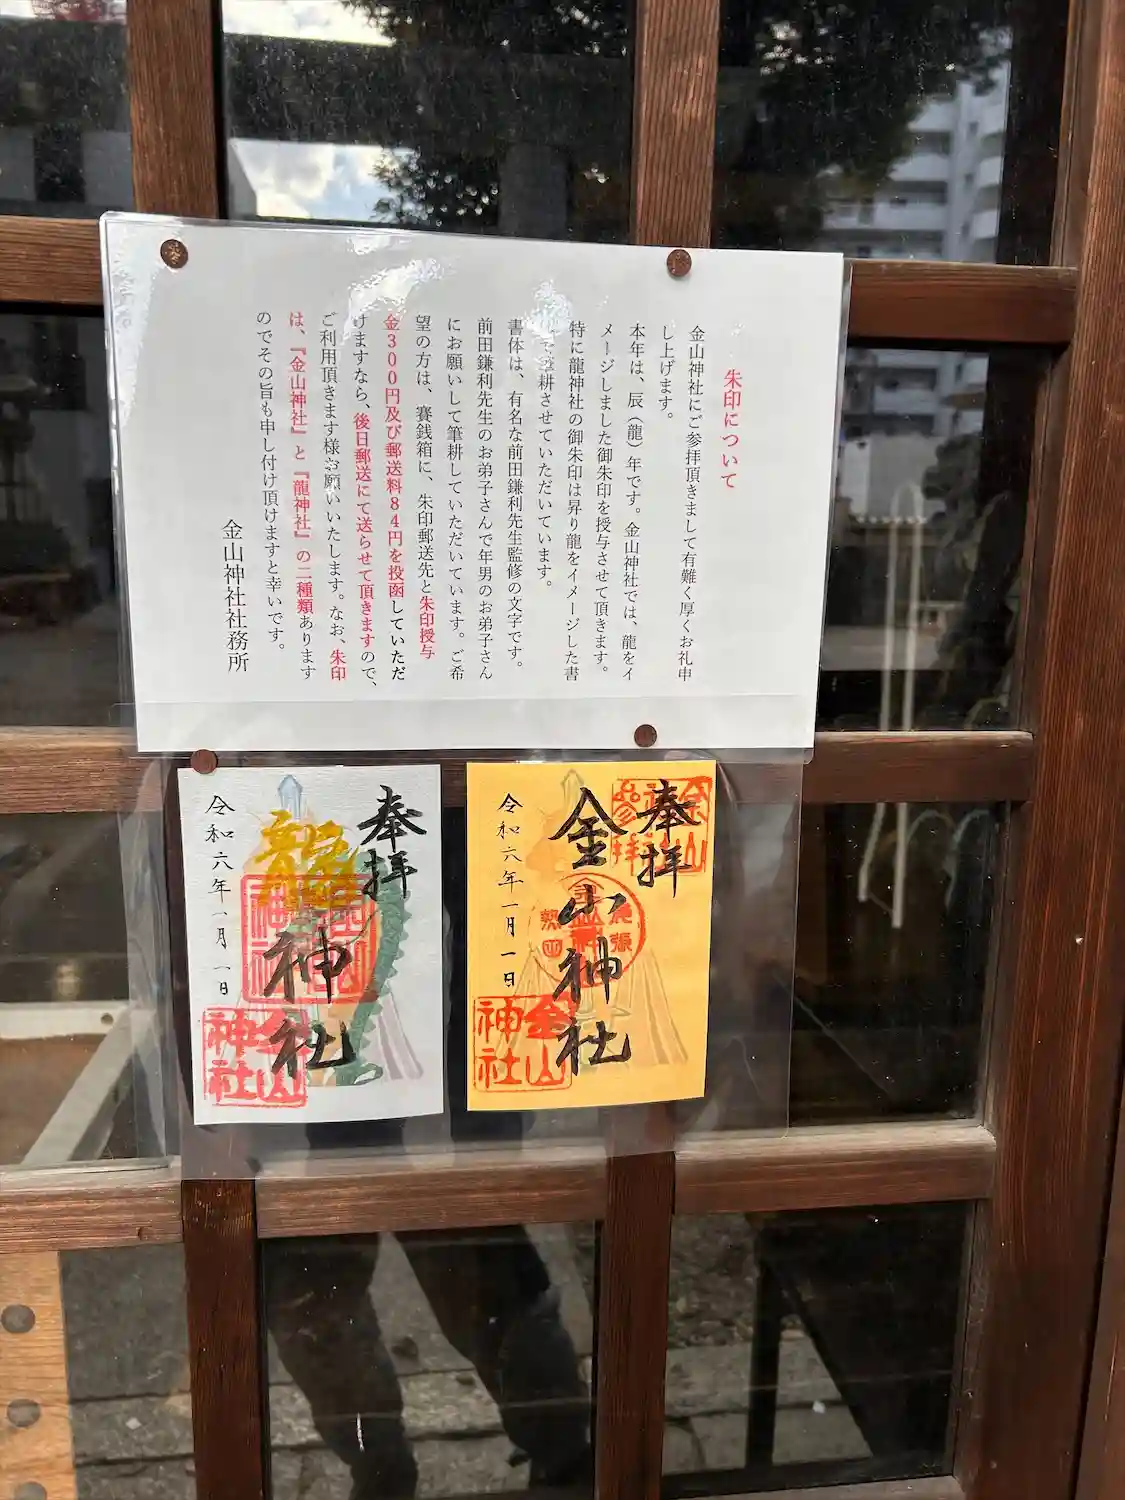 朱印について
金山神社にご参拝頂きまして有難く厚くお礼申
し上げます。
本年は、辰（龍）年です。金山神社では、龍をイ
メージしました御朱印を授与させて頂きます。
特に龍神社の御朱印は昇り龍をイメージした書
で筆耕させていただいています。
書体は、有名な前田鎌利先生監修の文字です。
前田鎌利先生のお弟子さんで年男のお弟子さん
にお願いして筆耕していただいています。ご希
望の方は、賽銭箱に、朱印郵送先と朱印授与
金300円及び郵送料84円を投函していただ
けますなら、後日郵送にて送らせて頂きますので、
ご利用頂きます様お願いいたします。なお、朱印
は、『金山神社』と『龍神社』の二種類あります
のでその旨も申し付け頂けますと幸いです。
金山神社社務所
奉拝
龍神社
令和六年一月一日
金山神社
奉拝
金山神社
令和六年一月一日
尾張
熱田
金山神社